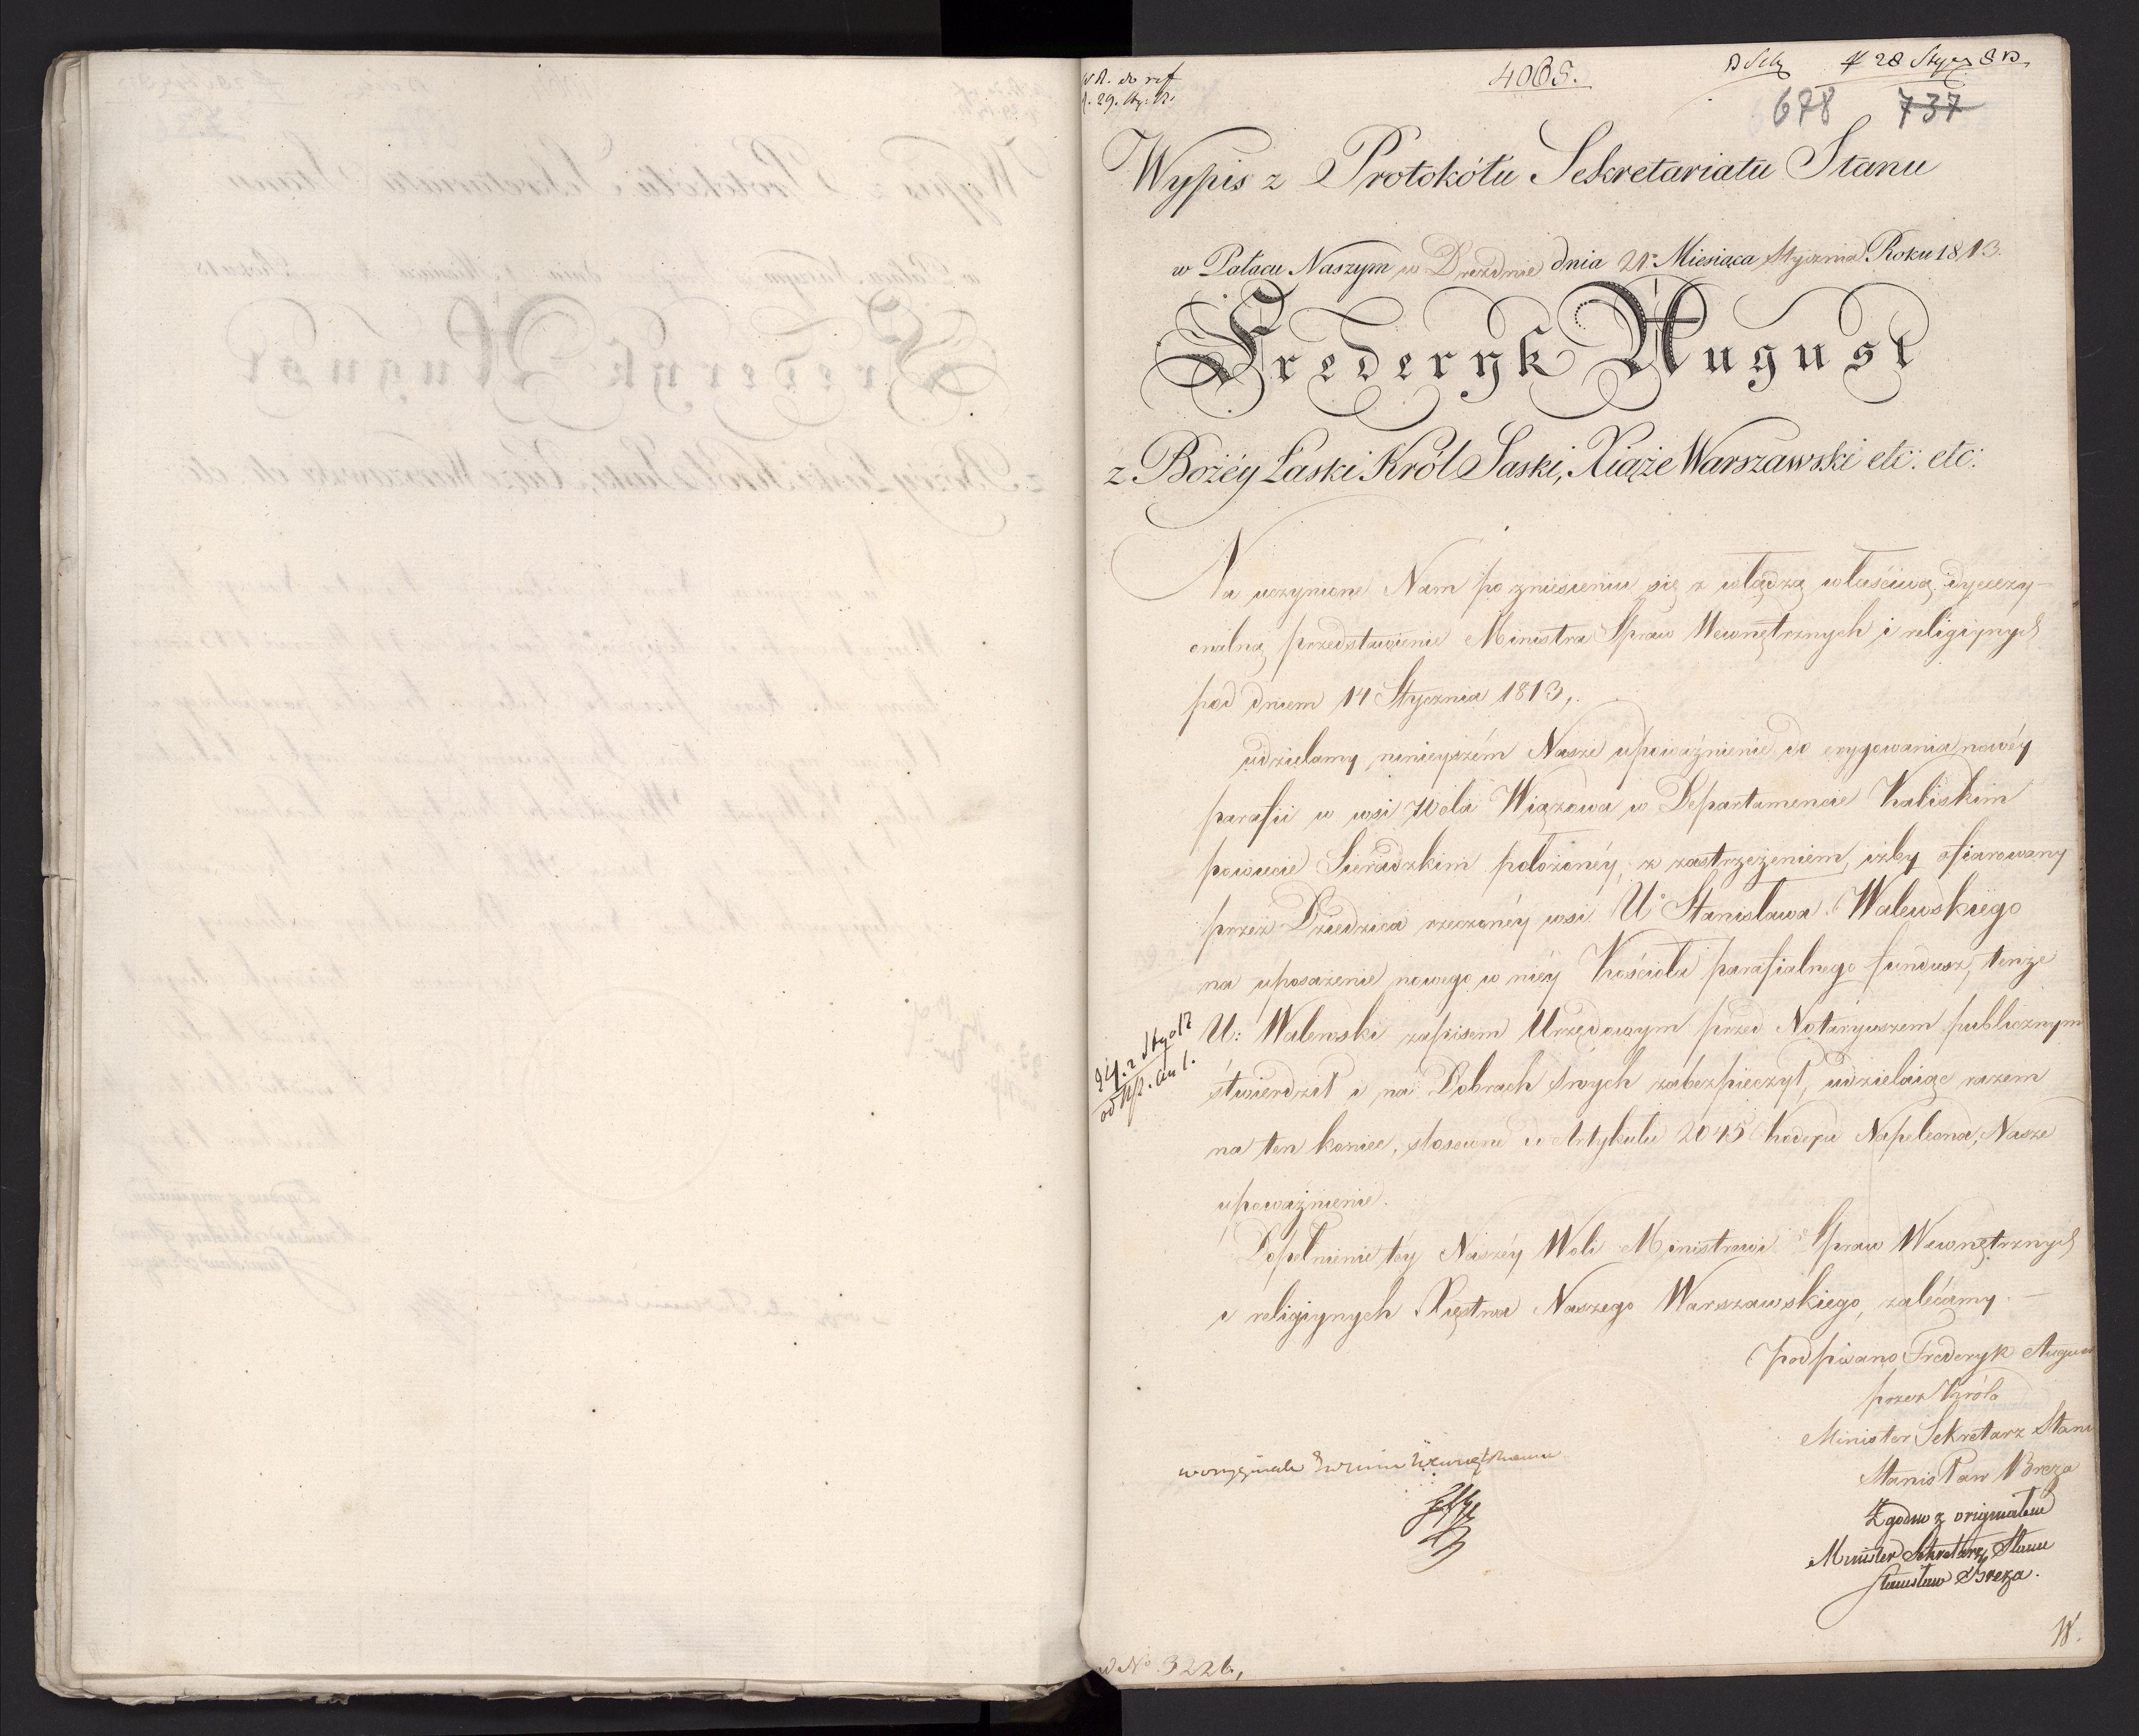 4065.
678 737
Wypis z Protokółu Sekretariatu Stanu
w Pałacu Naszym w Dreźnie dnia 21º Miesiąca Stycznia Roku 1813.
Frederyk August
z Bożéy Łaski Król Saski, Xiąże Warszawski etc: etc:
Na uczynione Nam po zniesieniu się z władzą właściwą dyecezy-
onalną przedstawienie Ministra Spraw Wewnętrznych i religiynych
pod dniem 14 Stycznia 1813,
udzielamy ninieyszém Nasze upoważnienie do erygowania nowéy
parafii w wsi Wola Wiązowa w Departamencie Kaliskim
powiecie Sieradzkim położonéy, z zastrzeżeniem, iżby ofiarowany
przez Dziedzica rzeczonéy wsi U: Stanisława Walewskiego
na uposażenie nowego w niéy Kościoła parafialnego fundusz, tenże
U: Walewski zapisem Urzędowym przed Notaryuszem publicznym
stwierdził i na Dobrach swych zabezpieczył, udzielaiąc razem
na ten koniec, stosownie do Artykułu 2045 Kodexu Napoleona, Nasze
upoważnienie.
Dopełnienie téy Naszéy Woli Ministrowi Spraw Wewnętrznych
i religiynych Xięstwa Naszego Warszawskiego, zalécamy.
(podpisano Frederyk August
przez Króla
Minister Sekretarz Stanu
Stanisław Breza
Zgodno z originałem
Minister Sekretarz Stanu
Stanisław Breza.
W.
w Nº 3226,